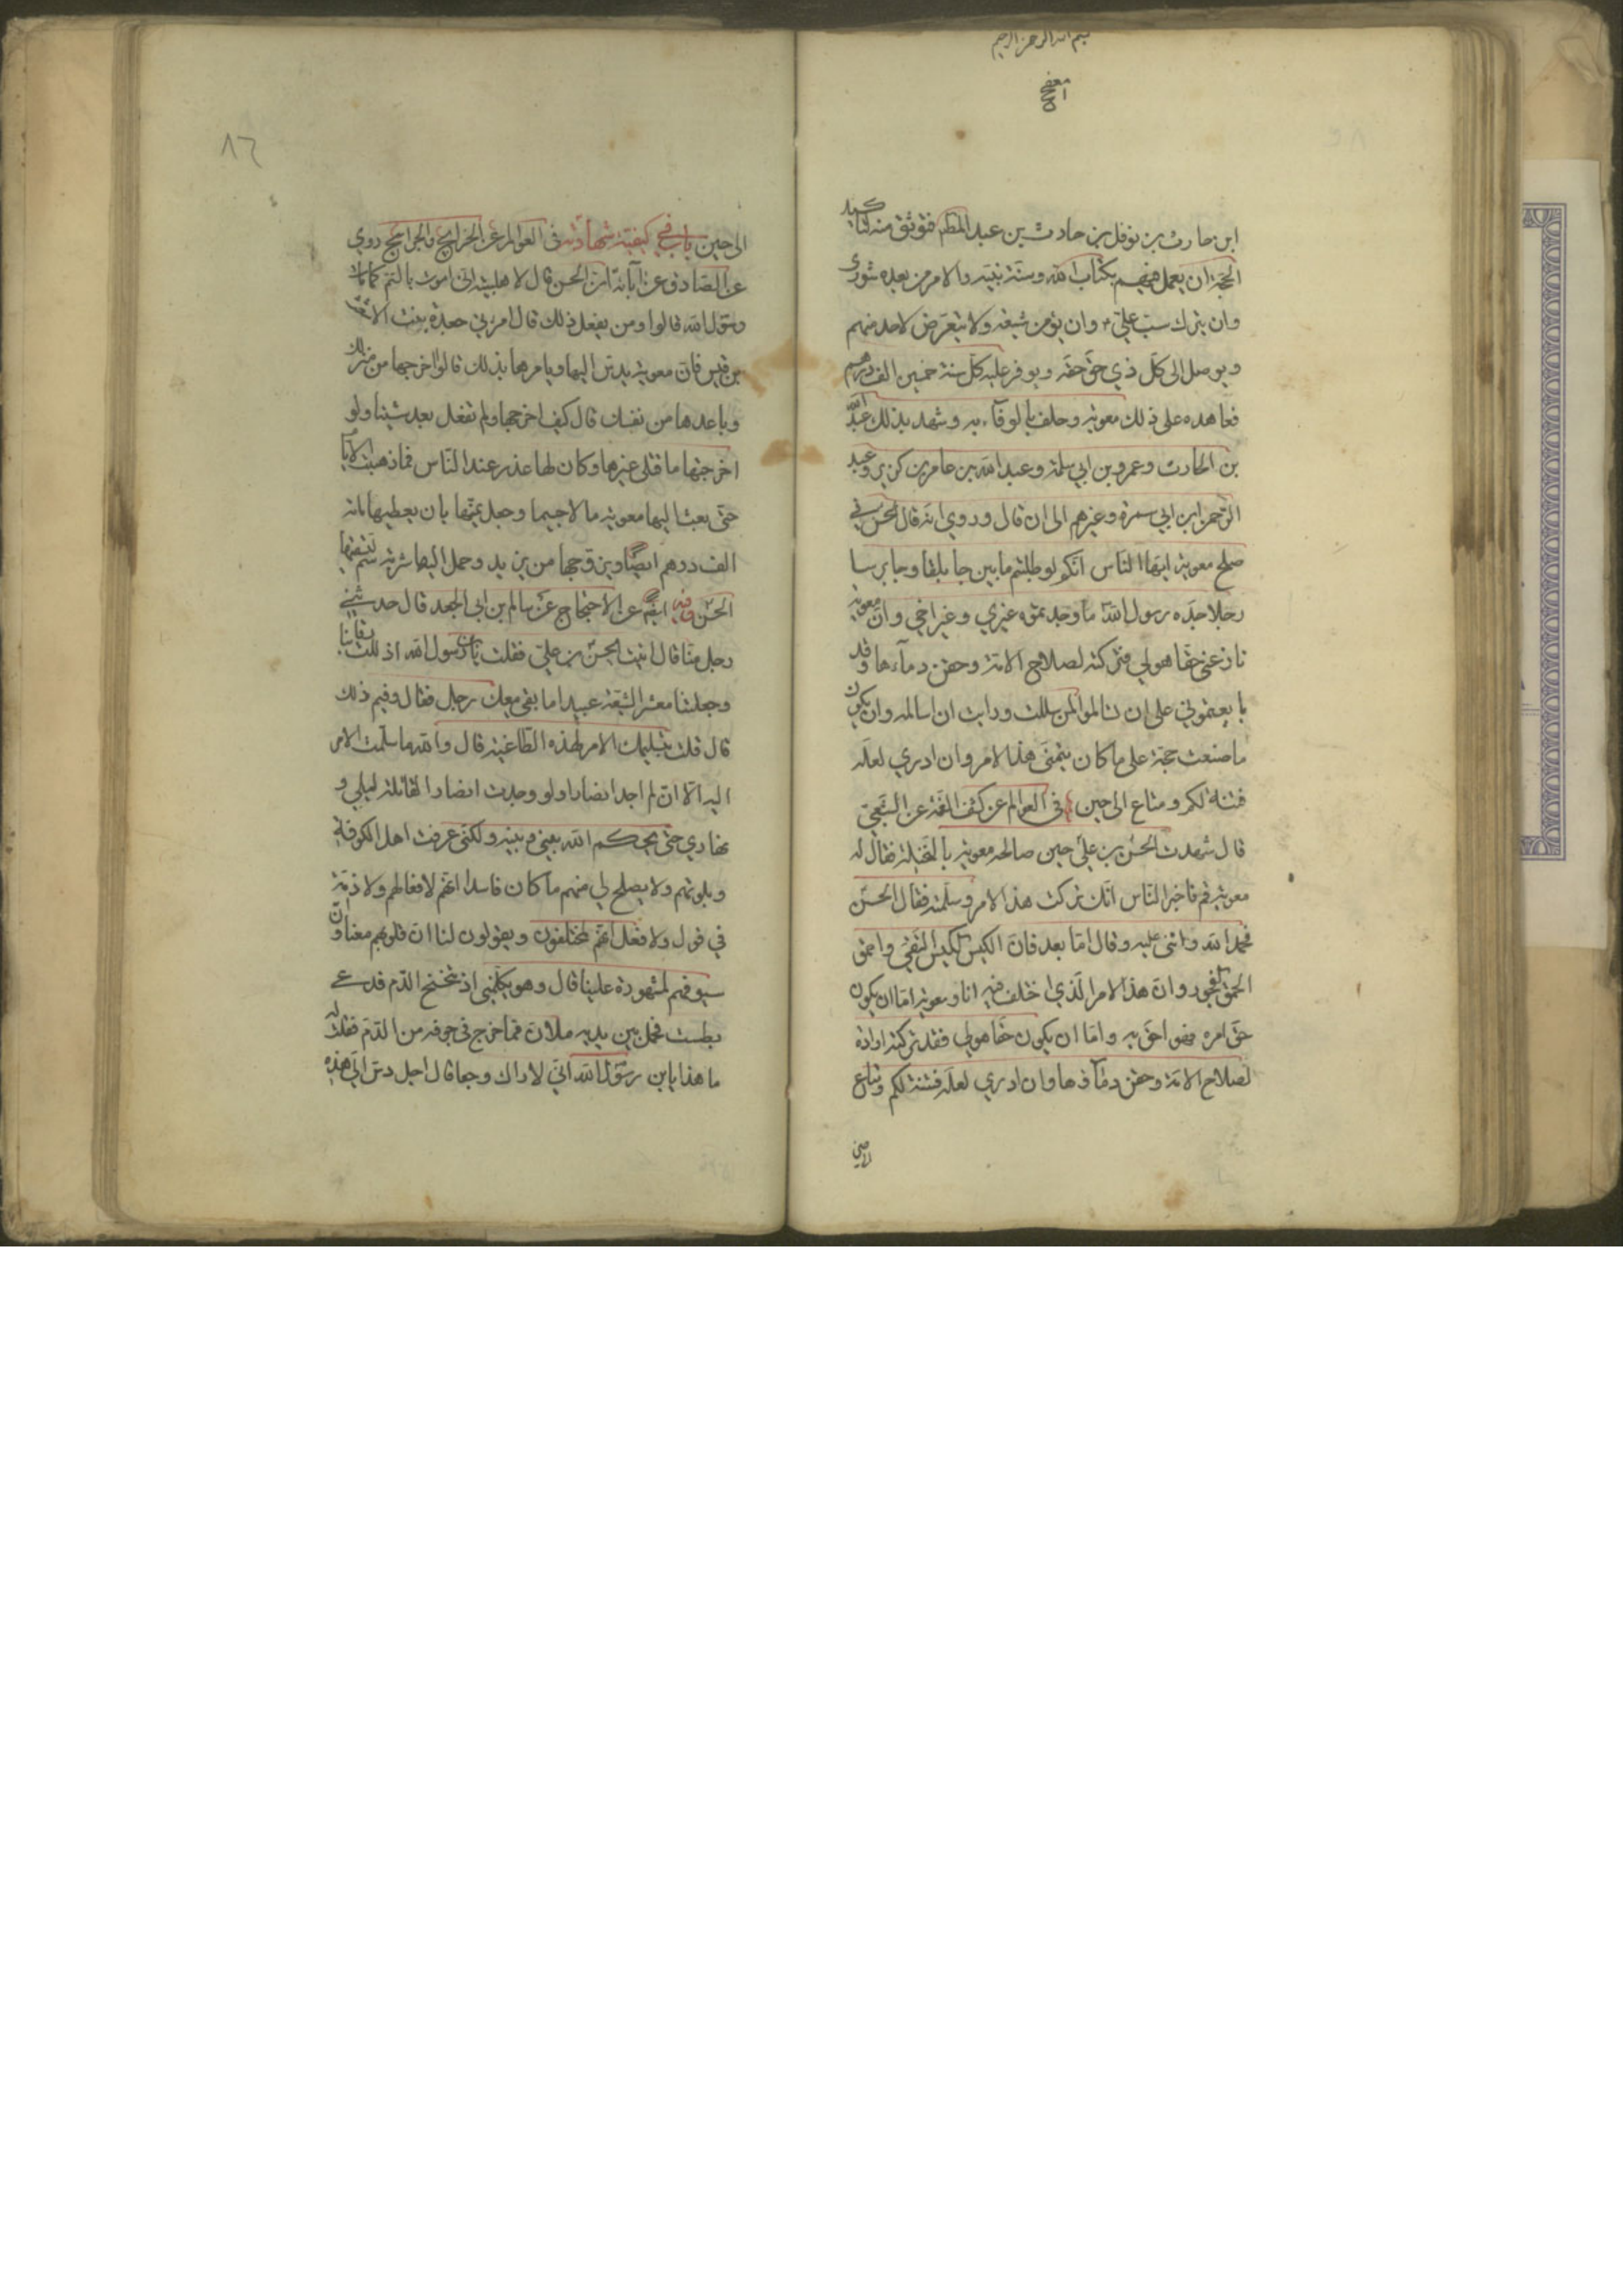 بسم الله الرحمن الرحيم
ابن حارث بن نوفل بن حارث بن عبد المطلب فتوثق منه لتأكيد
الحجة ان يعمل فيهم بكتاب الله وسنة نبيه والامر من بعده شورى
وان يترك سب علي وان يؤمن شيعته ولا يتعرض لاحد منهم
ويوصل الى كل ذي حق حقه ويوفر عليه كل سنة خمسين الف درهم
فعاهده على ذلك معوية وحلف بالوفاء به وشهد بذلك عبد الله
بن الحارث وعمرو بن ابي سلمة وعبد الله بن عامر بن كريز وعبد
الرحمن ابن ابي سمرة وغيرهم الى ان قال وروي انه قال الحسن في
صلح معوية ايها الناس انكم لو طلبتم ما بين جابلقا وجابرسا
رجلا جده رسول الله ما وجدتموه غيري وغير اخي وان معوية
نازعني حقا هو لي فتركته لصلاح الامة وحقن دماءها وقد
بايعتموني على ان تسالموا من سالمت ورايت ان اسالمه وان يكون
ما صنعت حجة على ما كان يتمنى هذا الامر وان ادري لعله
فتنة لكم ومتاع الى حين في العوالم عن كشف الغمة عن الشعبي
قال شهدت الحسن بن علي حين صالحه معوية بالنخيلة فقال له
معوية قم فاخبر الناس انك تركت هذا الامر وسلمته فقال الحسن
فحمد الله واثنى عليه وقال اما بعد فان اكيس الكيس التقى واحمق
الحمق الفجور وان هذا الامر الذي اختلف فيه انا ومعوية اما ان يكون
حق امرء فهو احق به واما ان يكون حقا هو لي فقد تركته ارادة
لصلاح الامة وحقن دماءها وان ادري لعله فتنة لكم ومتاع
٨٦
الى حين باب في كيفية شهادته في العوالم عن الخرايج والجرايح روي
عن الصادق عن آبائه ان الحسن قال لاهلبيته اني اموت بالسم كما مات
رسول الله قالوا ومن يفعل ذلك قال امرأتي جعدة بنت الاشعث
بن قيس فان معوية يدس اليها ويامرها بذلك قالوا اخرجها من منزلك
وباعدها من نفسك قال كيف اخرجها ولم تفعل بعد شيئا ولو
اخرجتها ما قتلني غيرها وكان لها عذر عند الناس فما ذهبت الايام
حتى بعث اليها معوية مالا جسيما وجعل يمنيها بان يعطيها مائة
الف درهم ايضا ويزوجها من يزيد وحمل اليها شربة سم لتسقيها
الحسن وفيه ايضا عن الاحتجاج عن سالم بن ابي الجعد قال حدثني
رجل منا قال اتيت الحسن بن علي فقلت يابن رسول الله اذللت رقابنا
وجعلتنا معشر الشيعة عبيدا ما بقي معك رجل فقال وفيم ذلك
قال قلت بتسليمك الامر لهذه الطاغية قال والله ما سلمت الامر
اليه الا اني لم اجد انصارا ولو وجدت انصارا لقاتلته ليلي و
نهاري حتى يحكم الله بيني وبينه ولكني عرفت اهل الكوفة
وبلوتهم ولا يصلح لي منهم ما كان فاسدا انهم لا وفا لهم ولا ذمة
في قول ولا فعل انهم لمختلفون ويقولون لنا ان قلوبهم معنا وان
سيوفهم لمشهورة علينا قال وهو يكلمني اذ تنخع الدم فدعى
بطست فحمل من بين يديه ملان مما خرج من جوفه من الدم فقلت له
ما هذا يابن رسول الله اني لاراك وجعا قال اجل دس الي هذه